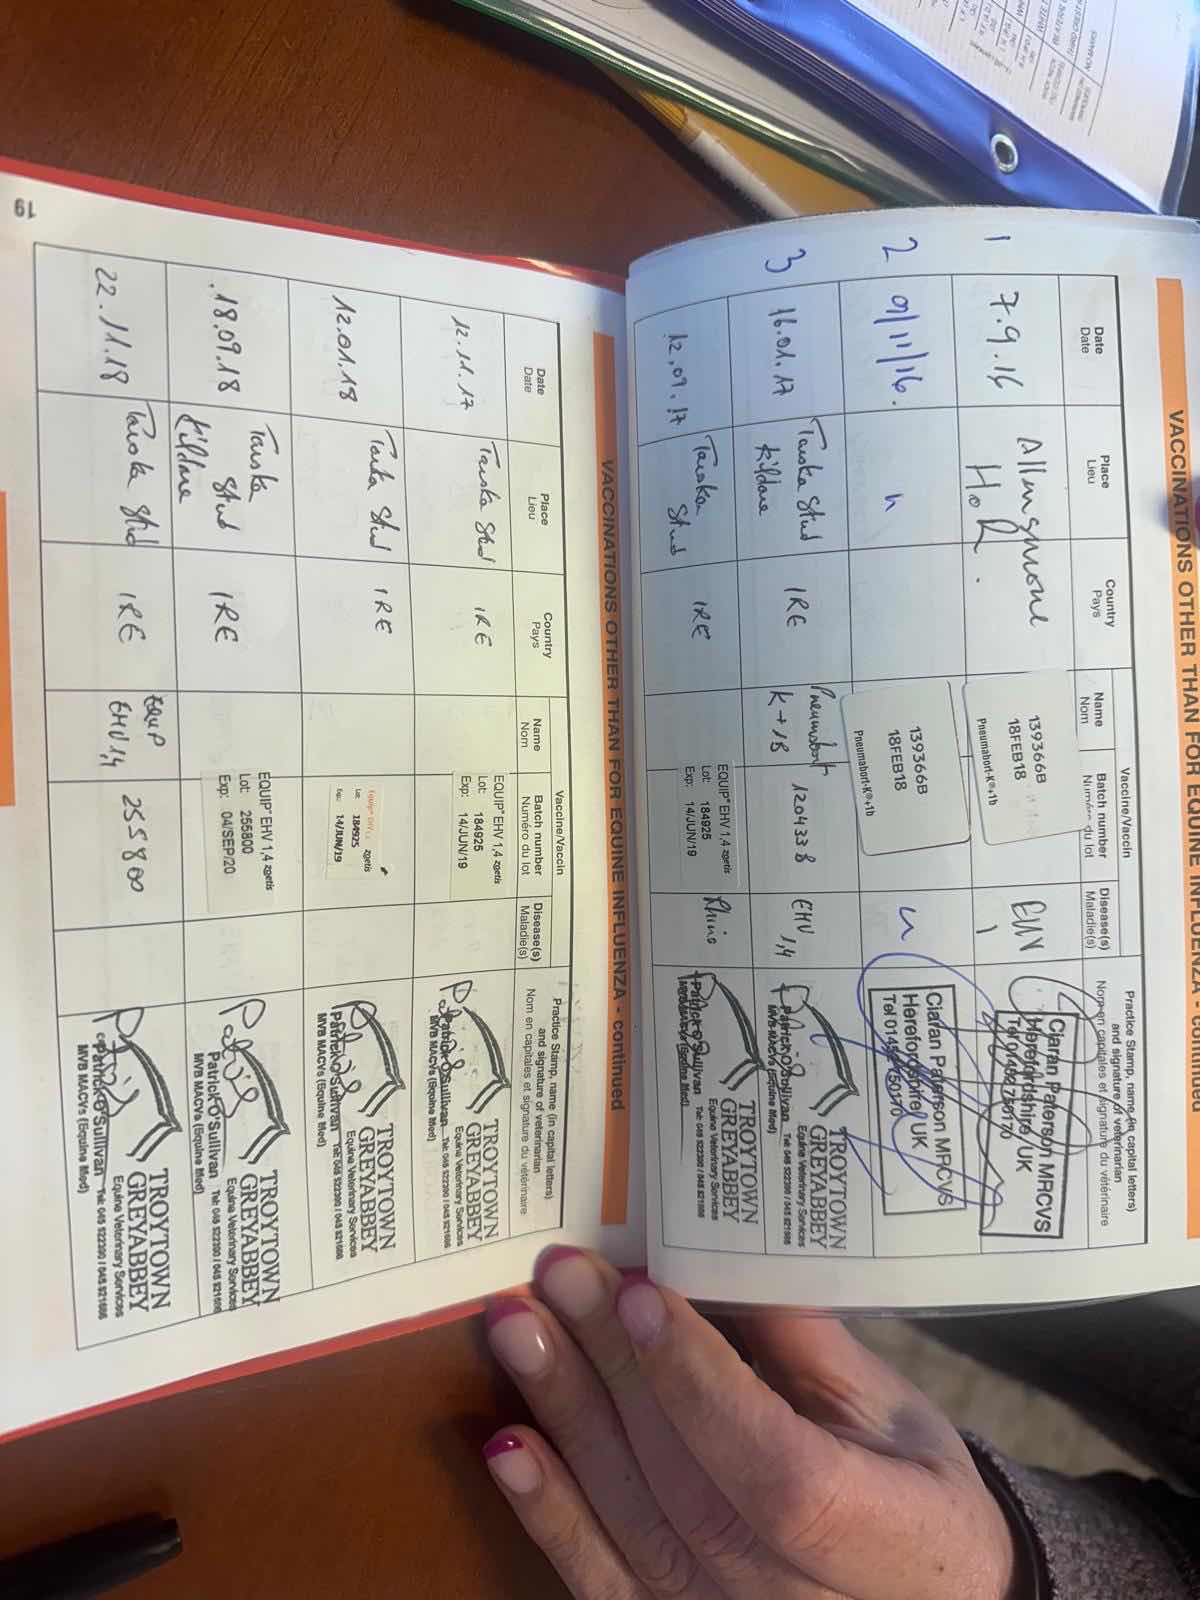 VACCINATIONS OTHER THAN FOR EQUINE INFLUENZA - continued
Date
Date
Place
Lieu
Country
Pays
Vaccine/Vaccin
Name
Nom
Batch number
Numéro du lot
Disease(s)
Maladie(s)
Practice Stamp, name (in capital letters)
and signature of veterinarian
Nom en capitales et signature du vétérinaire
1
7.9.16
H.o.R.
139366B
18FEB18
Pneumabort-K®+1b
EHV
1
Ciaran Paterson MRCVS
Herefordshire UK
Tel 01432750170
2
9/11/16.
"
139366B
18FEB18
Pneumabort-K®+1b
"
Ciaran Paterson MRCVS
Herefordshire UK
Tel 01432750170
3
16.01.17
Tarska Stud
Kildare
IRE
Pneumabort
K+1B
120433B
EHV
1,4
TROYTOWN
GREYABBEY
Equine Veterinary Services
Patrick O'Sullivan Tel: 045 522300 / 045 521686
MVB MACVs (Equine Med)
12.09.17
Tarska Stud
IRE
EQUIP® EHV 1,4 zoetis
Lot: 184925
Exp: 14/JUN/19
Rhino
TROYTOWN
GREYABBEY
Equine Veterinary Services
Patrick O'Sullivan Tel: 045 522300 / 045 521686
MVB MACVs (Equine Med)
VACCINATIONS OTHER THAN FOR EQUINE INFLUENZA - continued
Date
Date
Place
Lieu
Country
Pays
Vaccine/Vaccin
Name
Nom
Batch number
Numéro du lot
Disease(s)
Maladie(s)
Practice Stamp, name (in capital letters)
and signature of veterinarian
Nom en capitales et signature du vétérinaire
12.11.17
Tarska Stud
IRE
EQUIP® EHV 1,4 zoetis
Lot: 184925
Exp: 14/JUN/19
TROYTOWN
GREYABBEY
Equine Veterinary Services
Patrick O'Sullivan Tel: 045 522300 / 045 521686
MVB MACVs (Equine Med)
12.01.18
Tarska Stud
IRE
Equip EHV 1,4 zoetis
Lot: 184925
Exp: 14/JUN/19
TROYTOWN
GREYABBEY
Equine Veterinary Services
Patrick O'Sullivan Tel: 045 522300 / 045 521686
MVB MACVs (Equine Med)
18.09.18
Tarska
Stud
Kildare
IRE
EQUIP® EHV 1,4 zoetis
Lot: 255800
Exp: 04/SEP/20
TROYTOWN
GREYABBEY
Equine Veterinary Services
Patrick O'Sullivan Tel: 045 522300 / 045 521686
MVB MACVs (Equine Med)
22.11.18
Tarska Stud
IRE
EQUIP
EHV 1,4
255800
TROYTOWN
GREYABBEY
Equine Veterinary Services
Patrick O'Sullivan Tel: 045 522300 / 045 521686
MVB MACVs (Equine Med)
19